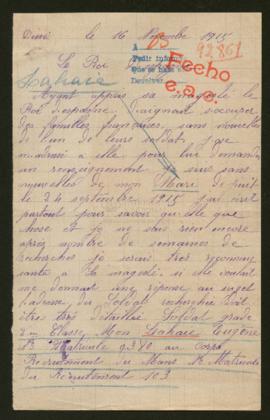 le 16 Novembre 1915
93.861
Le Roi
Pedir inform
Que se hará
Devolver
Fecho
e.a.c.
Lahaie
Ayant appris sa majesté le
Roi d'espagne daignant s'occuper
des familles françaises, sans nouvelles
de l'un de leurs soldat, j'ai
à elle pour lui demander
un renseignement suis sans
nouvelles de mon Mari depuit
le 24 septembre 1915 j'ai écrit
partout pour savoir quelle que
chose et je ne sais rien encore
après nombre de semaines de
recherches je serais très reconnais
sante à Sa magesté si elle voulait
me donner une réponse au sujet
l'adresse du Soldat recherché doit
êtres très détaillée Soldat grade
2me Classe Mon Lahaie Eugène
No Matricule 9370 au Corps
Recrutement du Mans No Matricule
du Recrutement 103